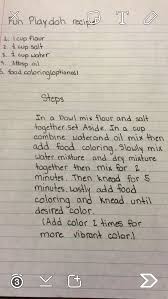 Fun Playdoh recipe
1. 1 cup flour
2. ¼ cup salt
3. ¼ cup water
4. 1tbsp oil
5. food coloring(optional)
Steps
In a bowl mix flour and salt
together. Set aside. In a cup
combine water and oil mix then
add food coloring. Slowly mix
water mixture and dry mixture
together then mix for 2
minutes. Then knead for 5
minutes. Lastly add food
coloring and knead until
desired color.
(Add color 2 times for
more vibrant color.)
3